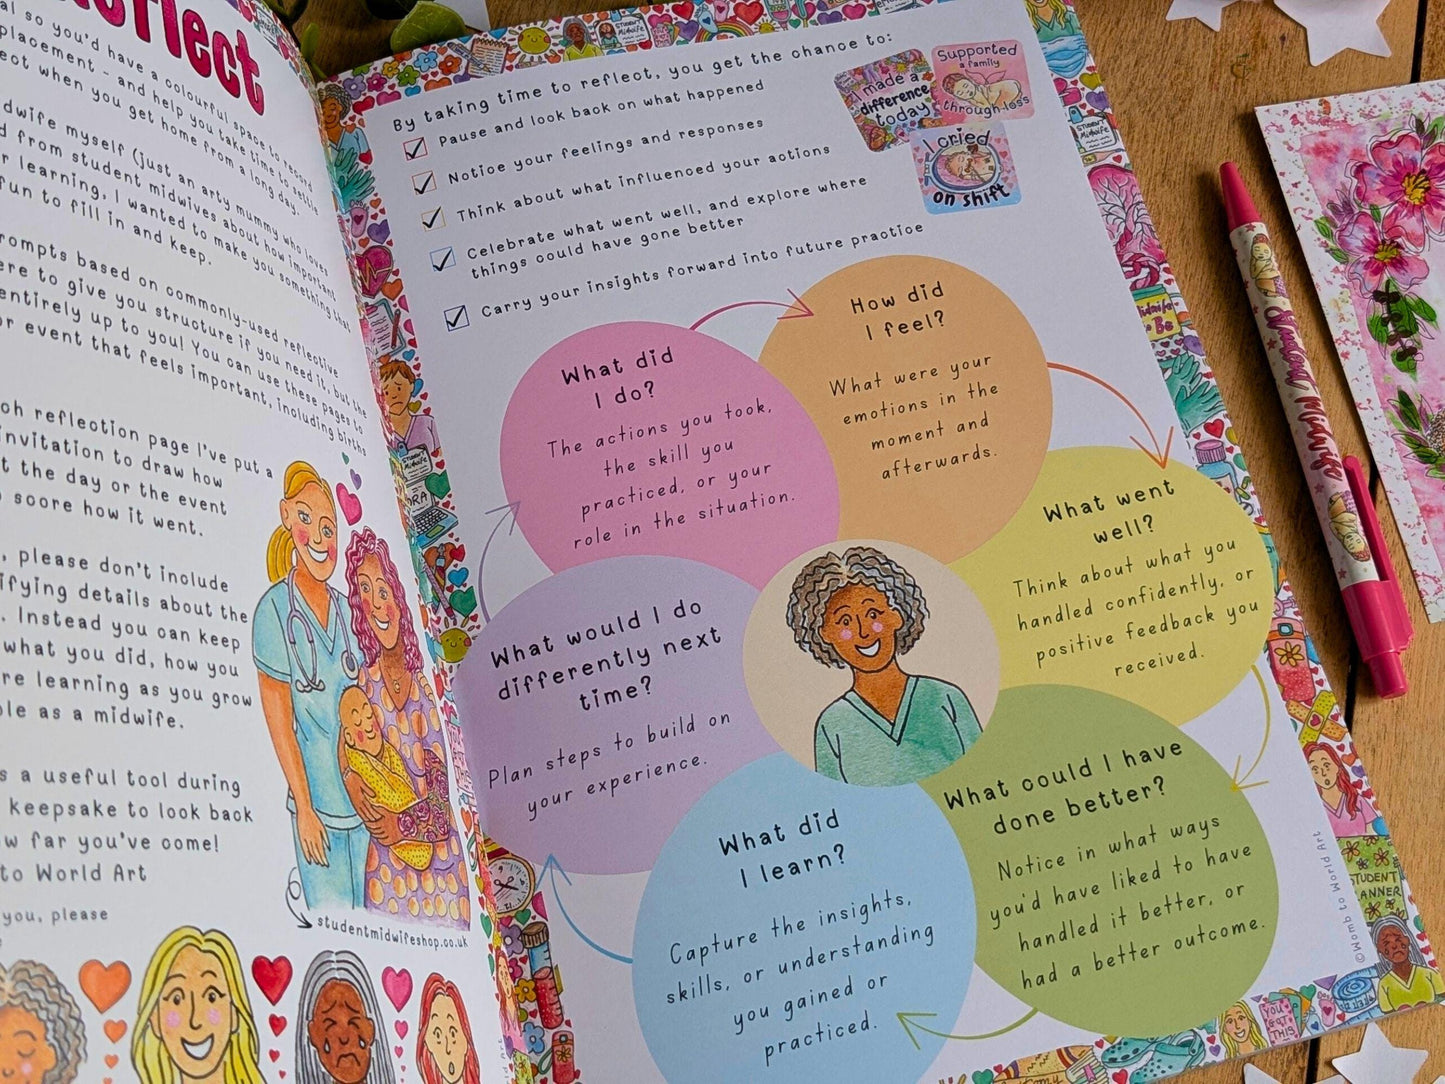 Reflect
so you'd have a colourful space to record
placement - and help you take time to settle
when you get home from a long day.
midwife myself (just an arty mummy who loves
from student midwives about how important
learning, I wanted to make you something that
fun to fill in and keep.
prompts based on commonly-used reflective
here to give you structure if you need it, but the
entirely up to you! You can use these pages to
or event that feels important, including births
reflection page I've put a
invitation to draw how
the day or the event
score how it went.
please don't include
details about the
Instead you can keep
what you did, how you
learning as you grow
as a midwife.
a useful tool during
keepsake to look back
far you've come!
to World Art
you, please
studentmidwifeshop.co.uk
By taking time to reflect, you get the chance to:
Pause and look back on what happened
Notice your feelings and responses
Think about what influenced your actions
Celebrate what went well, and explore where
things could have gone better
Carry your insights forward into future practice
I made a
difference
today
Supported
a family
through loss
I cried
on shift
What did
I do?
The actions you took,
the skill you
practiced, or your
role in the situation.
How did
I feel?
What were your
emotions in the
moment and
afterwards.
What went
well?
Think about what you
handled confidently, or
positive feedback you
received.
What could I have
done better?
Notice in what ways
you'd have liked to have
handled it better, or
had a better outcome.
What did
I learn?
Capture the insights,
skills, or understanding
you gained or
practiced.
What would I do
differently next
time?
Plan steps to build on
your experience.
©Womb to World Art
STUDENT
Midwife
STUDENT
Midwife
STUDENT
Midwife
Midwife
to Be
STUDENT
PLANNER
YOU
GOT
THIS
Student Midwife